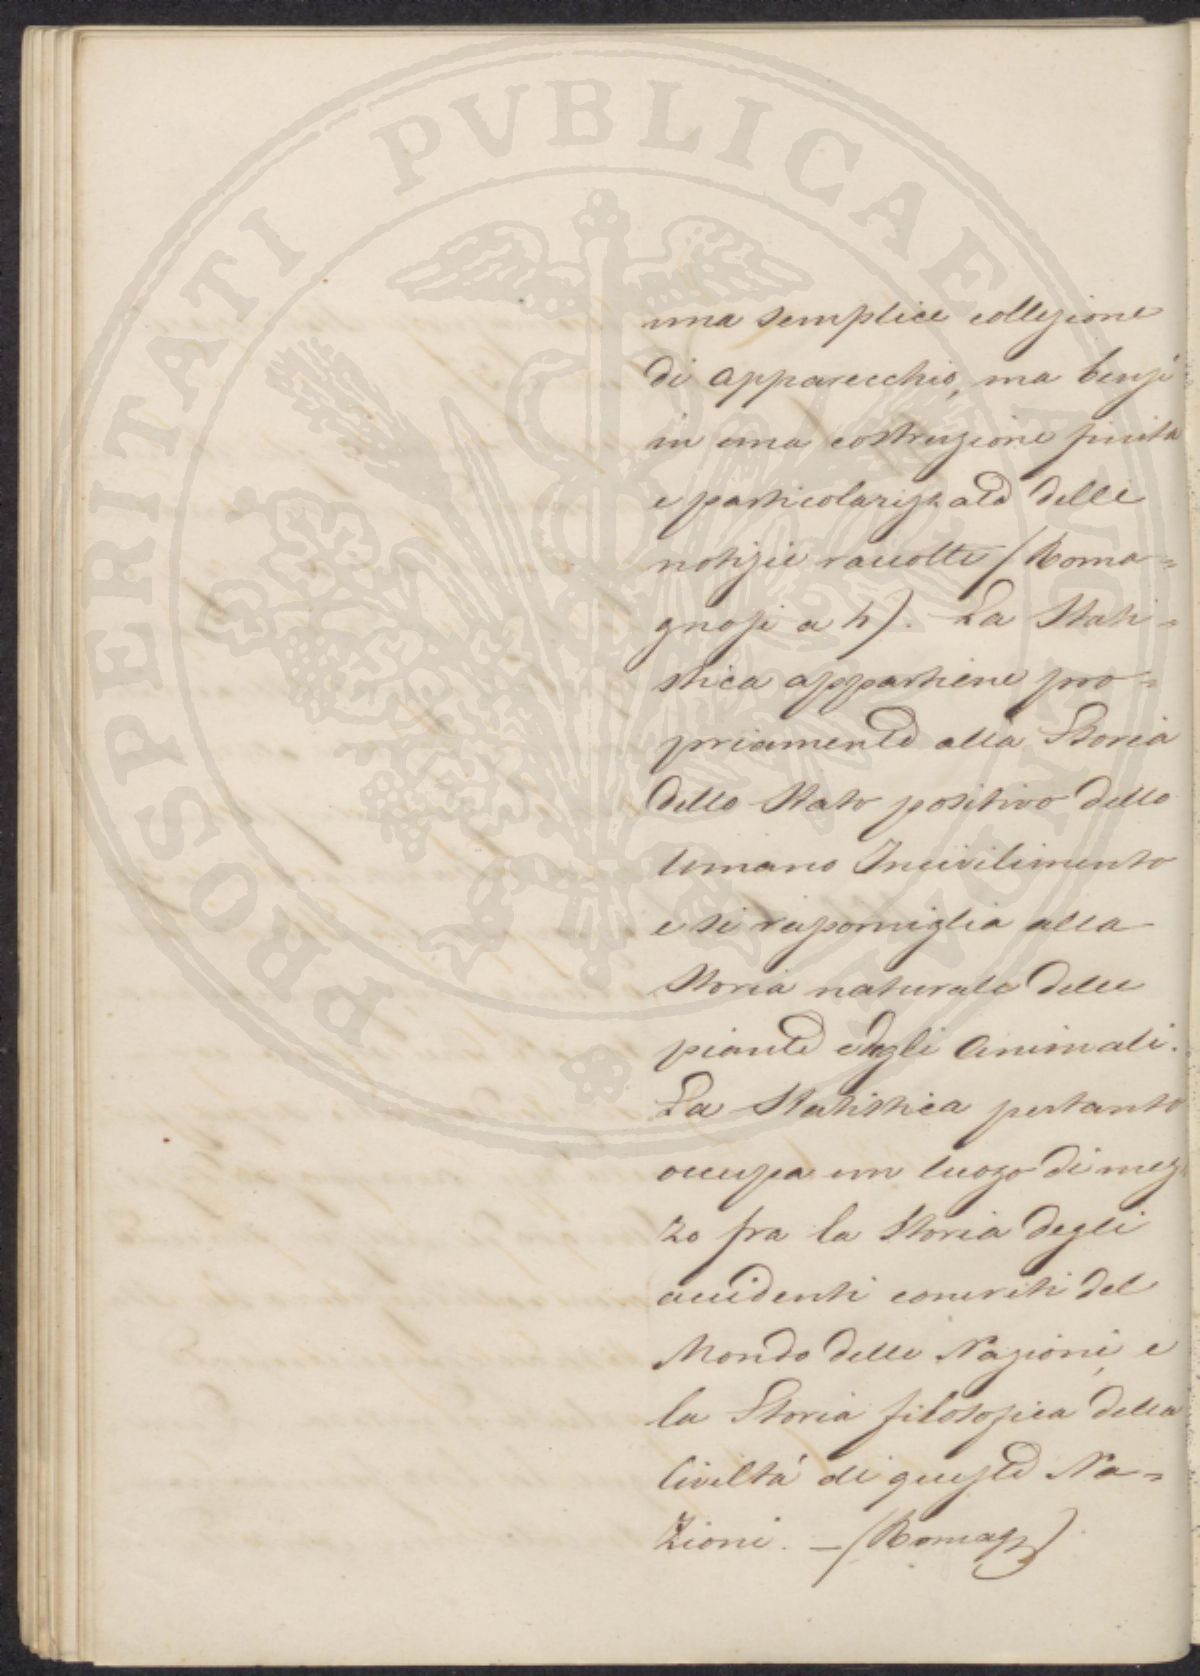 PROSPERITATI PVBLICAE AVGENDAE
una semplice collezione
di apparecchio, ma bensi
in una costruzione finita
e particolarizzata delle
notizie raccolte (Roma=
gnosi a h). La Stati=
stica appartiene pro=
priamente alla Storia
dello Stato positivo dello
umano Incivilimento
e si rassomiglia alla
Storia naturale delle
piante e degli animali.
La Statistica pertanto
occupa un luogo di mez
zo fra la Storia degli
accidenti concreti del
Mondo delle Nazioni, e
la Storia filosofica della
Civiltá di queste Na=
zioni. — (Romag)